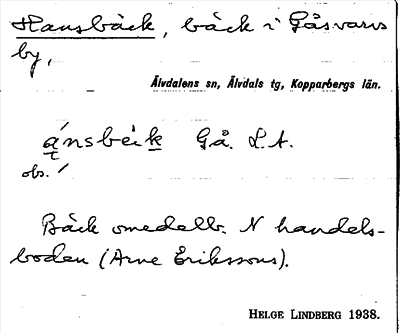 Hansbäck, bäck i Gåsvarvs
by,
Älvdalens sn, Älvdals tg, Kopparbergs län.
ánsbèk Gå. L.A.
obs. /
Bäck omedelb. N handels-
boden (Arne Erikssons).
HELGE LINDBERG 1938.